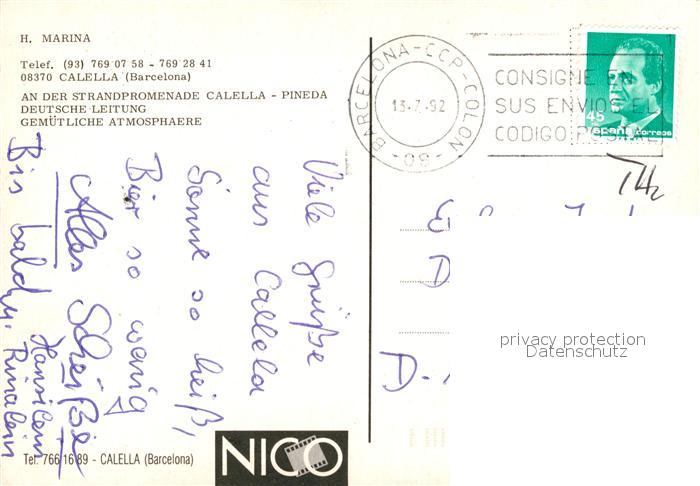 H. MARINA
Telef. (93) 769 07 58 - 769 28 41
08370 CALELLA (Barcelona)
AN DER STRANDPROMENADE CALELLA - PINEDA
DEUTSCHE LEITUNG
GEMÜTLICHE ATMOSPHAERE
BARCELONA-CCP-COLON
-09-
13-7-92
CONSIGNE EN
SUS ENVIOS EL
CODIGO POSTAL
45
España correos
Viele Grüße
aus Callela
Sonne so heiß,
Bier so wenig
Alles Scheiße
Bis bald
Hansilein
u. Rinalein
D
D-
privacy protection
Datenschutz
Tel. 766 16 89 - CALELLA (Barcelona)
NICO